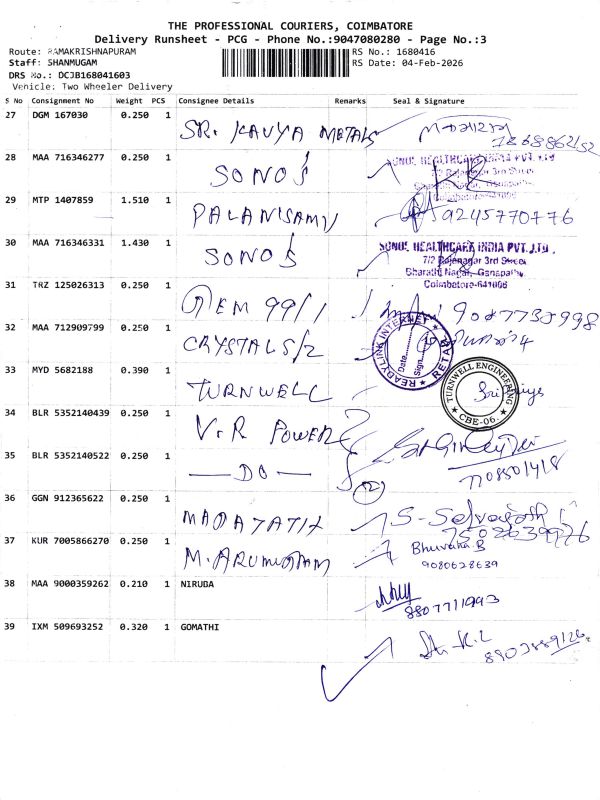 THE PROFESSIONAL COURIERS, COIMBATORE
Delivery Runsheet - PCG - Phone No.:9047080280 - Page No.:3
Route: RAMAKRISHNAPURAM
RS No.: 1680416
Staff: SHANMUGAM
RS Date: 04-Feb-2026
DRS No.: DCJB168041603
Vehicle: Two Wheeler Delivery
S No Consignment No Weight PCS Consignee Details Remarks Seal & Signature
27 DGM 167030 0.250 1 SR. KAVYA METALS
28 MAA 716346277 0.250 1 SONOS
SONOS HEALTHCARE INDIA PVT. LTD
7/2 Rajanagar 3rd Street
29 MTP 1407859 1.510 1 PALANISAMY 9245770776
30 MAA 716346331 1.430 1 SONOS
HEALTHCARE INDIA PVT. LTD.
7/2 Rajanagar 3rd Street
Bharathi Nagar, Ganapathy,
Coimbatore-641006
31 TRZ 125026313 0.250 1 GEM 99/1
32 MAA 712909799 0.250 1 CRYSTAL S/2
READYLINK INTERNET
Date
Sign
33 MYD 5682188 0.390 1 TURNWELL
TURNWELL ENGINEERING
CBE-06.
34 BLR 5352140439 0.250 1 V.R POWER
35 BLR 5352140522 0.250 1 — DO —
2
36 GGN 912365622 0.250 1
S-Selvaraj 7502639926
37 KUR 7005866270 0.250 1 M. ARUMUGAM
Bhuvana.B
9080628639
38 MAA 9000359262 0.210 1 NIRUBA
8807711993
39 IXM 509693252 0.320 1 GOMATHI